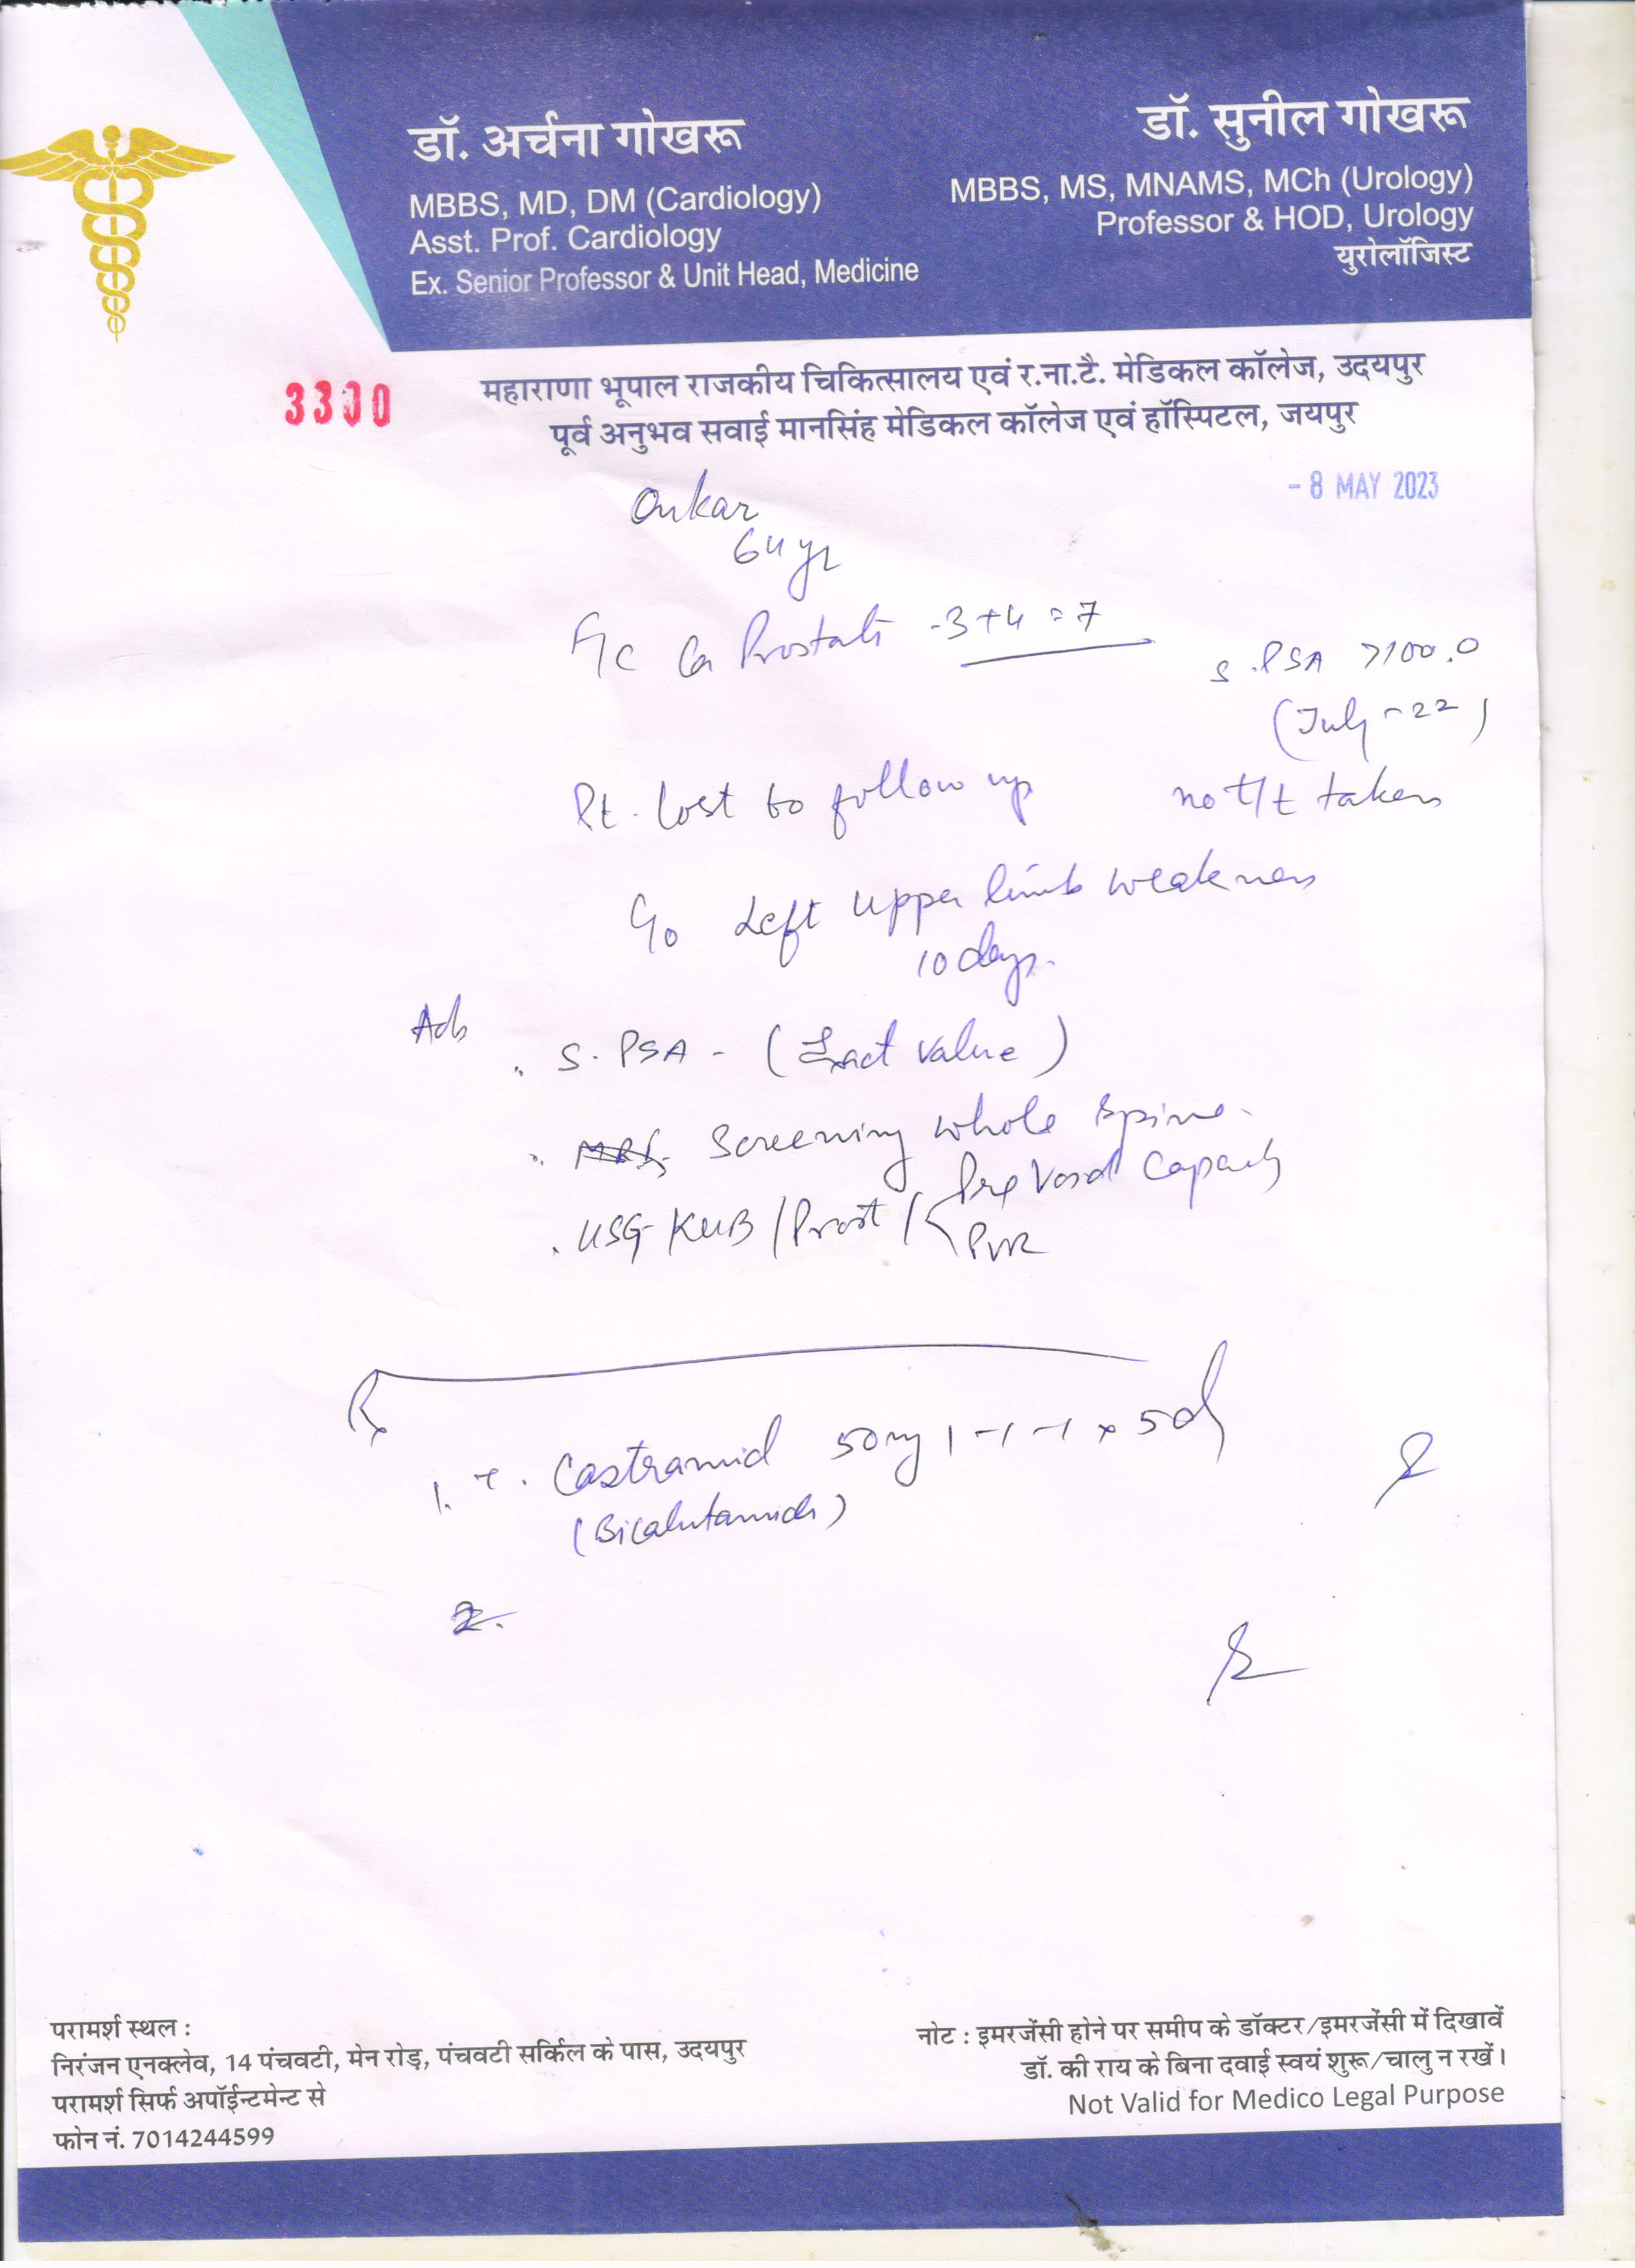 डॉ. अर्चना गोखरू
MBBS, MD, DM (Cardiology)
Asst. Prof. Cardiology
Ex. Senior Professor & Unit Head, Medicine
डॉ. सुनील गोखरू
MBBS, MS, MNAMS, MCh (Urology)
Professor & HOD, Urology
युरोलॉजिस्ट
3300
महाराणा भूपाल राजकीय चिकित्सालय एवं र.ना.टै. मेडिकल कॉलेज, उदयपुर
पूर्व अनुभव सवाई मानसिंह मेडिकल कॉलेज एवं हॉस्पिटल, जयपुर
- 8 MAY 2023
Onkar
64 yr
Ca Prostate - 3+4 = 7
S. PSA >100.0
(July - 22)
Pt. lost to follow up no t/t taken
C/o Left upper limb weakness
10 days.
Adv
S. PSA - (Exact value)
Screening whole spine
. USG KUB / Prost / Pre Void Capacity
PVR
Rx
1. T. Castramid 50mg 1-1-1 x 5d
(Bicalutamide)
2.
परामर्श स्थल :
निरंजन एनक्लेव, 14 पंचवटी, मेन रोड़, पंचवटी सर्किल के पास, उदयपुर
परामर्श सिर्फ अपॉईन्टमेन्ट से
फोन नं. 7014244599
नोट : इमरजेंसी होने पर समीप के डॉक्टर/इमरजेंसी में दिखावें
डॉ. की राय के बिना दवाई स्वयं शुरू/चालु न रखें।
Not Valid for Medico Legal Purpose